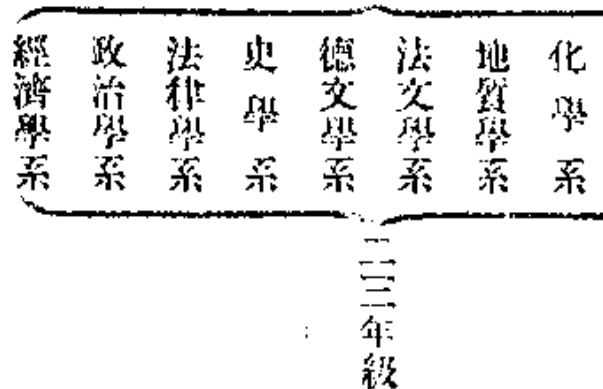 化學系
地質學系
法文學系
德文學系
史學系
法律學系
政治學系
經濟學系
二三年級